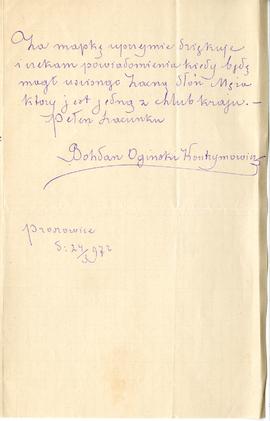 Za mapkę uprzejmie dziękuję
i czekam powiadomienia kiedy będę
mógł uścisnąć Zacną dłoń Męża
który jest jedną z chlub kraju. –
Pełen szacunku
Bohdan Ogiński Kontrymowicz
Proszowice
d: 24/X 97 r